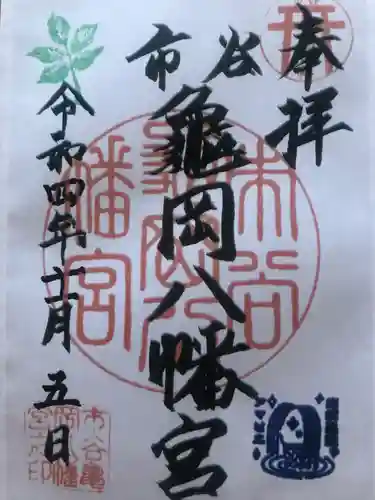 奉拝
市谷
龜岡八幡宮
令和四年十一月五日
市谷
龜岡八
幡宮
市谷龜
岡八幡
宮之印